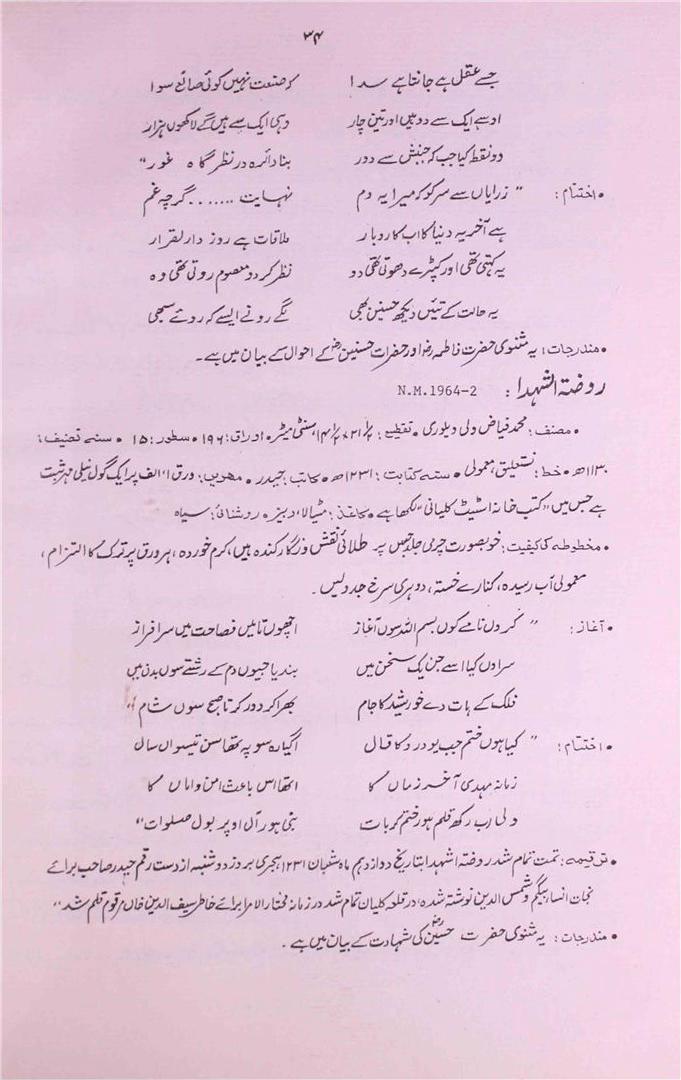 ۳۴
جسے عقل ہے جانتا ہے سدا کہ صنعت نہیں کوئی صانع سوا
اوسے ایک سے دو ہیں اور تین چار وہی ایک سے ہیں گے لاکھوں ہزار
دو نقط کیا جب کہ جنبش سے دور بنا دائرہ در نظر گاہ غور"
• اختتام: " زرایاں سے سرکو کہ میرا یہ دم نہایت ....... گرچہ غم
ہے آخر یہ دنیا کا اب کاروبار ملاقات ہے روز دار القرار
یہ کہتی تھی اور کپڑے دھوتی تھی دو نظر کر دو معصوم روتی تھی وہ
یہ حالت کے تئیں دیکھ حسنین بھی لگے رونے ایسے کہ روئے سبھی
• مندرجات: یہ مثنوی حضرت فاطمہؓ اور حضرات حسنینؓ کے احوال کے بیان میں ہے۔
روضۃ الشہدا: N.M.1964-2
• مصنف: محمد فیاض ولی ویلوری • تقطیع: ۲۱/۲×۱۴/۲ سنٹی میٹر • اوراق: ۱۹۶ • سطور: ۱۵ • سنہ تصنیف:
۱۱۳۰ھ • خط: نستعلیق، معمولی • سنہ کتابت: ۱۲۳۱ھ • کاتب: حیدر • مہریں: ورق ۱/الف پر ایک گول نیلی مہر ثبت
ہے جس میں "کتب خانہ اسٹیٹ کلیانی" لکھا ہے • کاغذ: مٹیالا، دبیز • روشنائی: سیاہ
• مخطوطہ کی کیفیت: خوبصورت چرمی جلد جس پر طلائی نقش و نگار کندہ ہیں، کرم خوردہ، ہر ورق پر ترک کا التزام،
معمولی آب رسیدہ، کنارے خستہ، دوہری سرخ جدولیں۔
• آغاز: " کروں نامے کوں بسم اللہ سوں آغاز اچھوں تا میں فصاحت میں سرافراز
سرادں کیا اسے جن یک سخن میں بندیا جیوں دم کے رشتے سوں بدن میں
فلک کے ہات دے خورشید کا جام بھرا کر دور کرتا صبح سوں شام"
• اختتام: " کیا ہوں ختم جب یو درد کا قال اگیارہ سو پہ تھا سن تیسواں سال
زمانہ مہدی آخر زماں کا اتھا اس باعث امن و اماں کا
ولی اب رکھ قلم ہور ختم کر بات نبی ہور آل اوپر بول صلوات"
• ترقیمہ: تمت تمام شد روضۃ الشہدا بتاریخ دوازدہم ماہ شعبان ۱۲۳۱ ہجری بروز دوشنبہ از دست رقم حیدر صاحب برائے
نجان انسا بیگم و شمس الدین نوشتہ شدہ، در قلعہ کلیان تمام شد در زمانہ فخار الامرا برائے خاطر سیف الدین خاں مرقوم قلم شد"
• مندرجات: یہ مثنوی حضرت حسینؓ کی شہادت کے بیان میں ہے۔